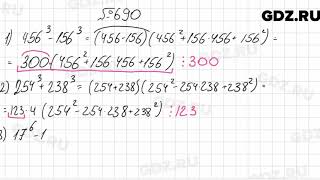 GDZ.RU
№690
1) 456³-156³ = (456-156)(456²+156·456+156²) =
= 300(456²+156·456+156²) ⋮ 300
2) 254³+238³ = (254+238)(254²-254·238+238²) =
= 123·4(254²-254·238+238²) ⋮ 123
3) 17⁶-1